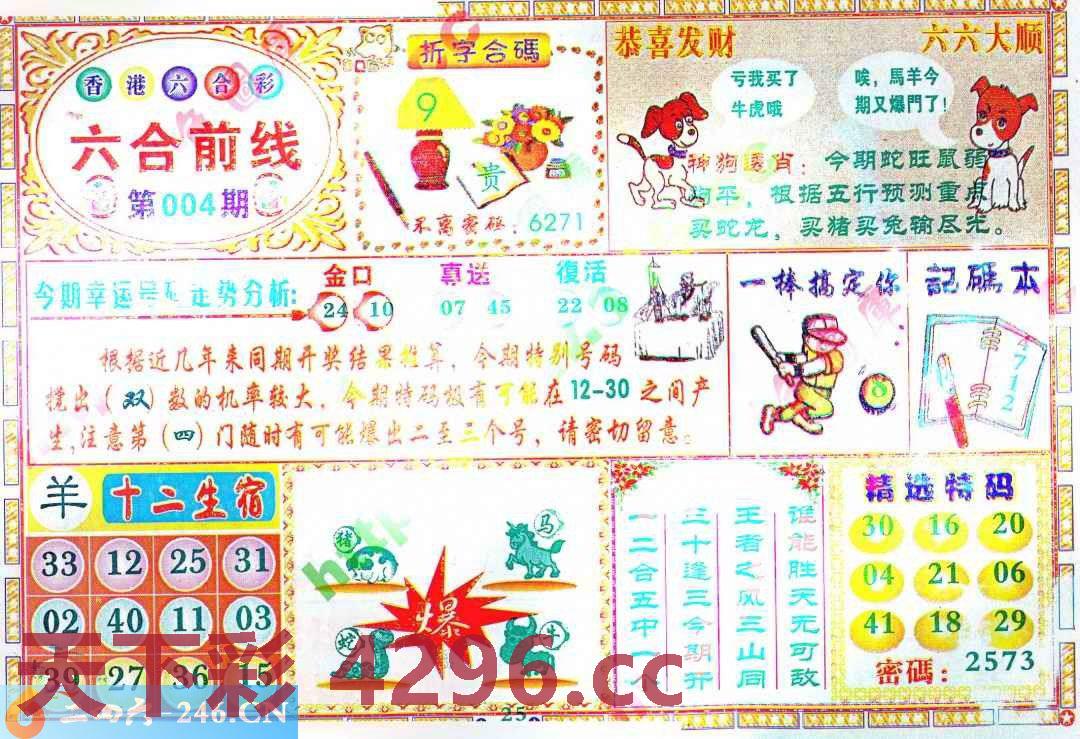 香港六合彩
六合前线
第004期
折字合碼
9
贵
不离密码：6271
恭喜发财
六六大顺
亏我买了
牛虎哦
唉，馬羊今
期又爆門了！
今期蛇旺鼠
根据五行预测重
买蛇龙，买猪买兔输尽光。
今期幸运号码走势分析：
金口
24 10
真送
07 45
復活
22 08
根据近几年来同期开奖结果推算，今期特别号码
搅出（双）数的机率较大，今期特码极有可能在12-30之间产
生，注意第（四）门随时有可能爆出二至三个号，请密切留意。
一棒搞定你
8
記碼本
4712
羊
十二生宿
33 12 25 31
02 40 11 03
39 27 36 15
猪
马
爆
蛇
牛
谁能胜天无可敌
王者之风三山同
三十逢三今期开
一二合五中一个
精选特码
30 16 20
04 21 06
41 18 29
密碼：2573
天下彩 4296.cc
246.CN
25